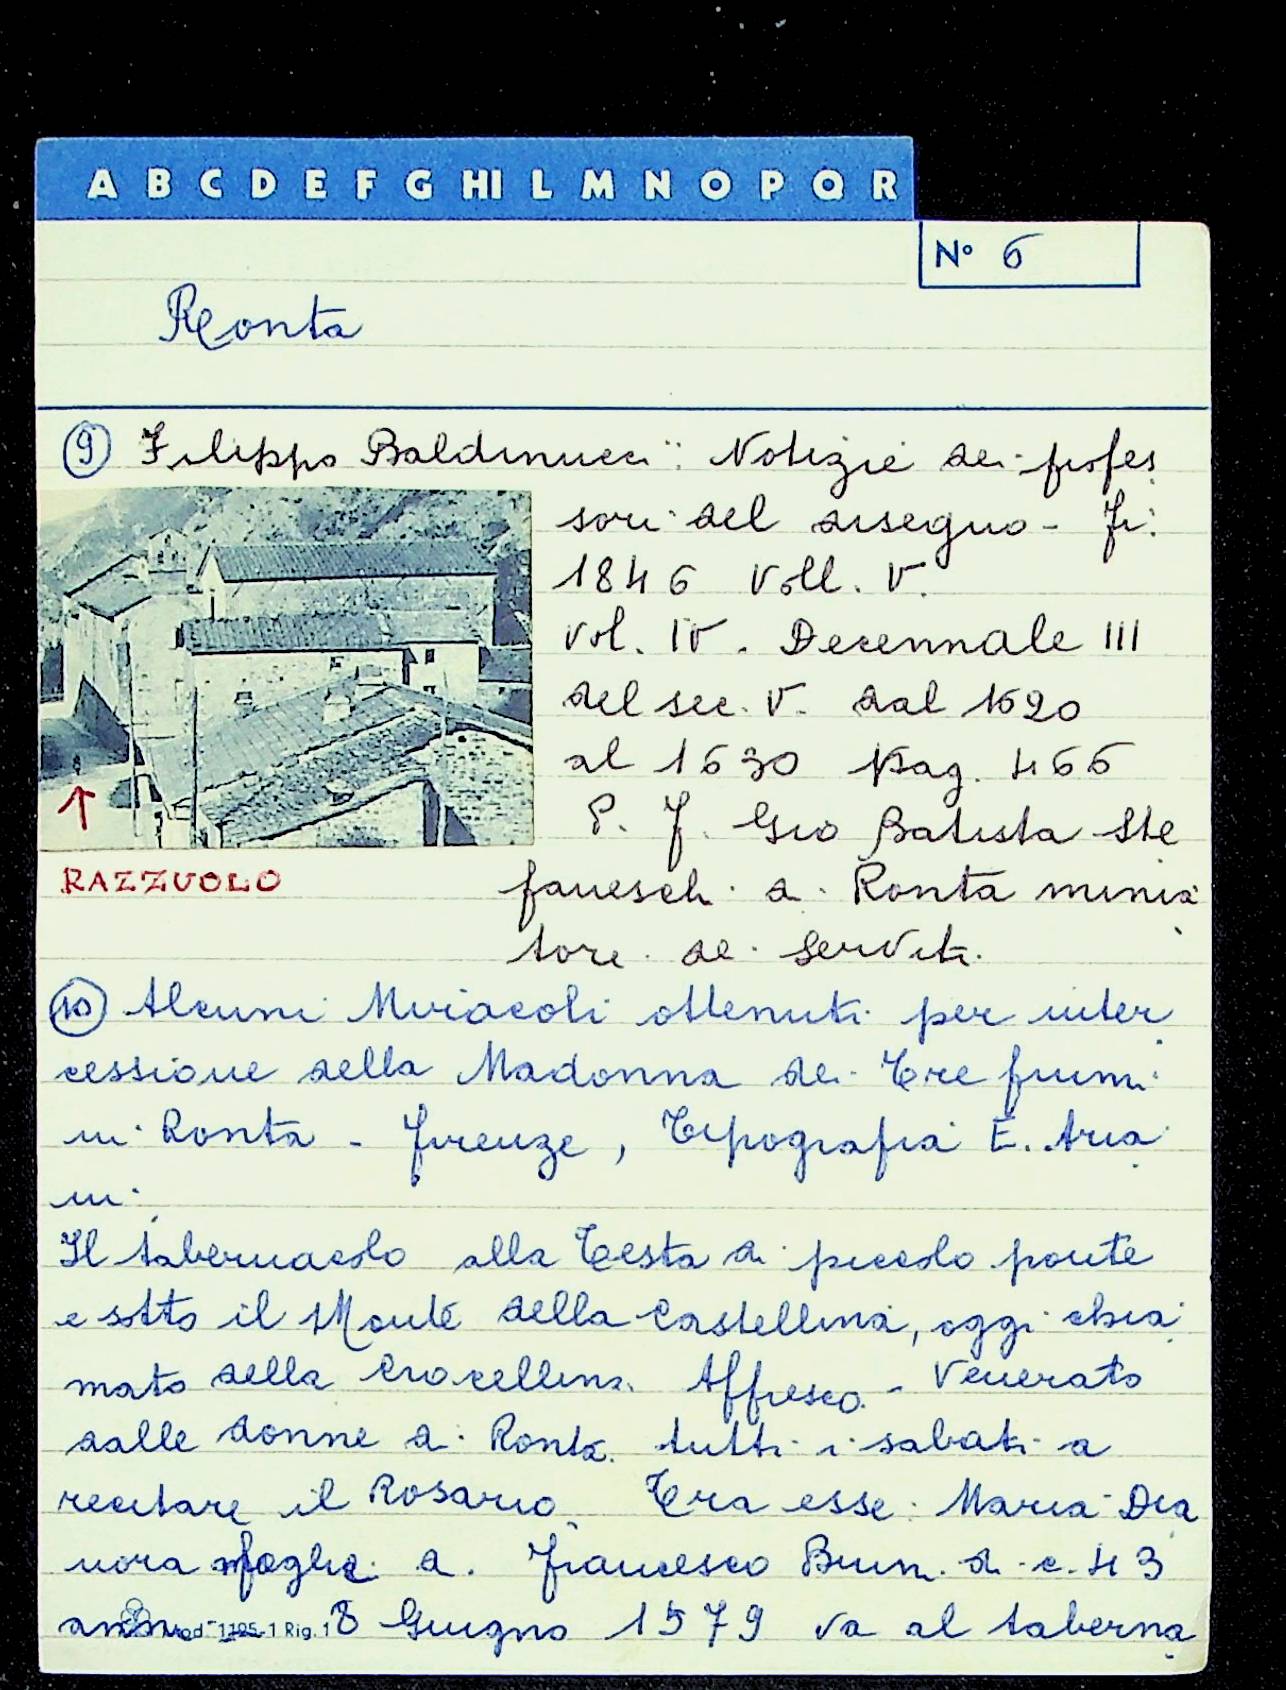 A B C D E F G HI L M N O P Q R
N° 6
Ronta
9 Filippo Baldinucci: Notizie dei profes
sori del disegno - Fi.
1846 Voll. V.
vol. IV. Decennale III
del sec. V. dal 1620
al 1630 Pag. 466
P. F. Gio Batista Ste
faneschi di Ronta minia
tore dei Serviti.
RAZZUOLO
10 Alcuni Miracoli ottenuti per inter
cessione della Madonna dei Tre fiumi
in Ronta - Firenze, Tipografia E. Aria
ni.
Il tabernacolo alla testa di piccolo ponte
e sotto il Monte della Castellina, oggi chia
mato della Crocellina. Affresco - Venerato
dalle donne di Ronta. tutti i sabati a
recitare il Rosario. Tra esse: Maria Dia
nora moglie di Francesco Bruni di c. 43
anni. 8 Giugno 1579 va al taberna
Mod. 1105-1 Rig. 1